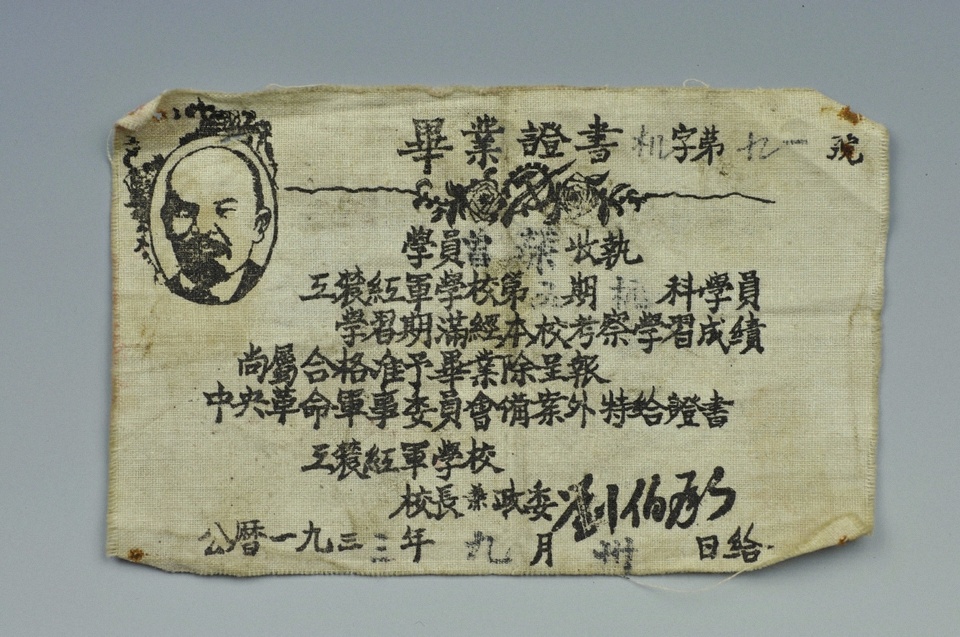 畢業證書 机字第九一號
學員曾 葉 收執
工農紅軍學校第 期 机 科學員
學習期滿經本校考察學習成績
尚屬合格准予畢業除呈報
中央革命軍事委員會備案外特給證書
工農紅軍學校
校長兼政委 劉伯承
公曆一九三三年九月卅日給